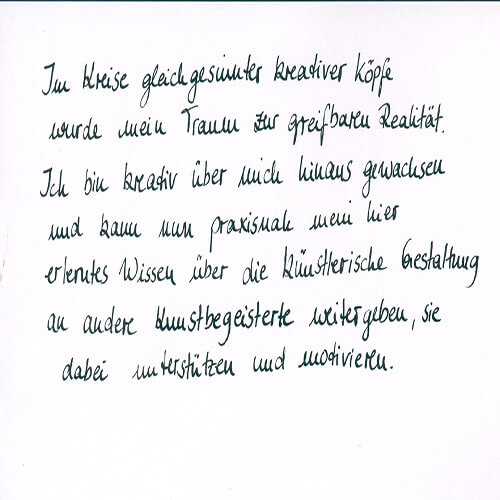 Im Kreise gleichgesinnter kreativer Köpfe
wurde mein Traum zur greifbaren Realität.
Ich bin kreativ über mich hinaus gewachsen
und kann nun praxisnah mein hier
erlerntes Wissen über die künstlerische Gestaltung
an andere Kunstbegeisterte weitergeben, sie
dabei unterstützen und motivieren.